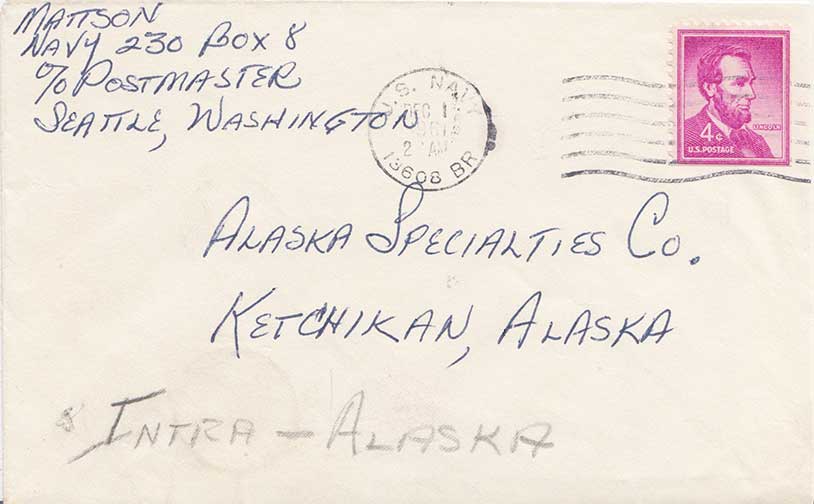 MATTSON
NAVY 230 BOX 8
c/o POSTMASTER
SEATTLE, WASHINGTON
U.S. NAVY
DEC 1
1961
2 AM
13608 BR.
LINCOLN
4¢
U.S. POSTAGE
ALASKA SPECIALTIES CO.
KETCHIKAN, ALASKA
INTRA - ALASKA